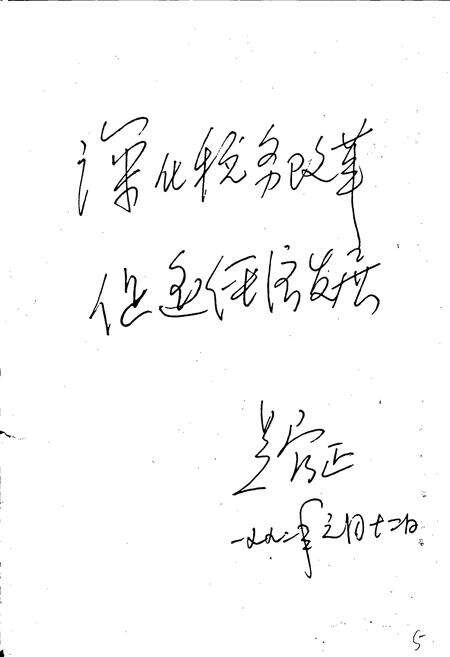 深化税务改革
促进经济发展
吴官正
一九九二年三月十二日
5